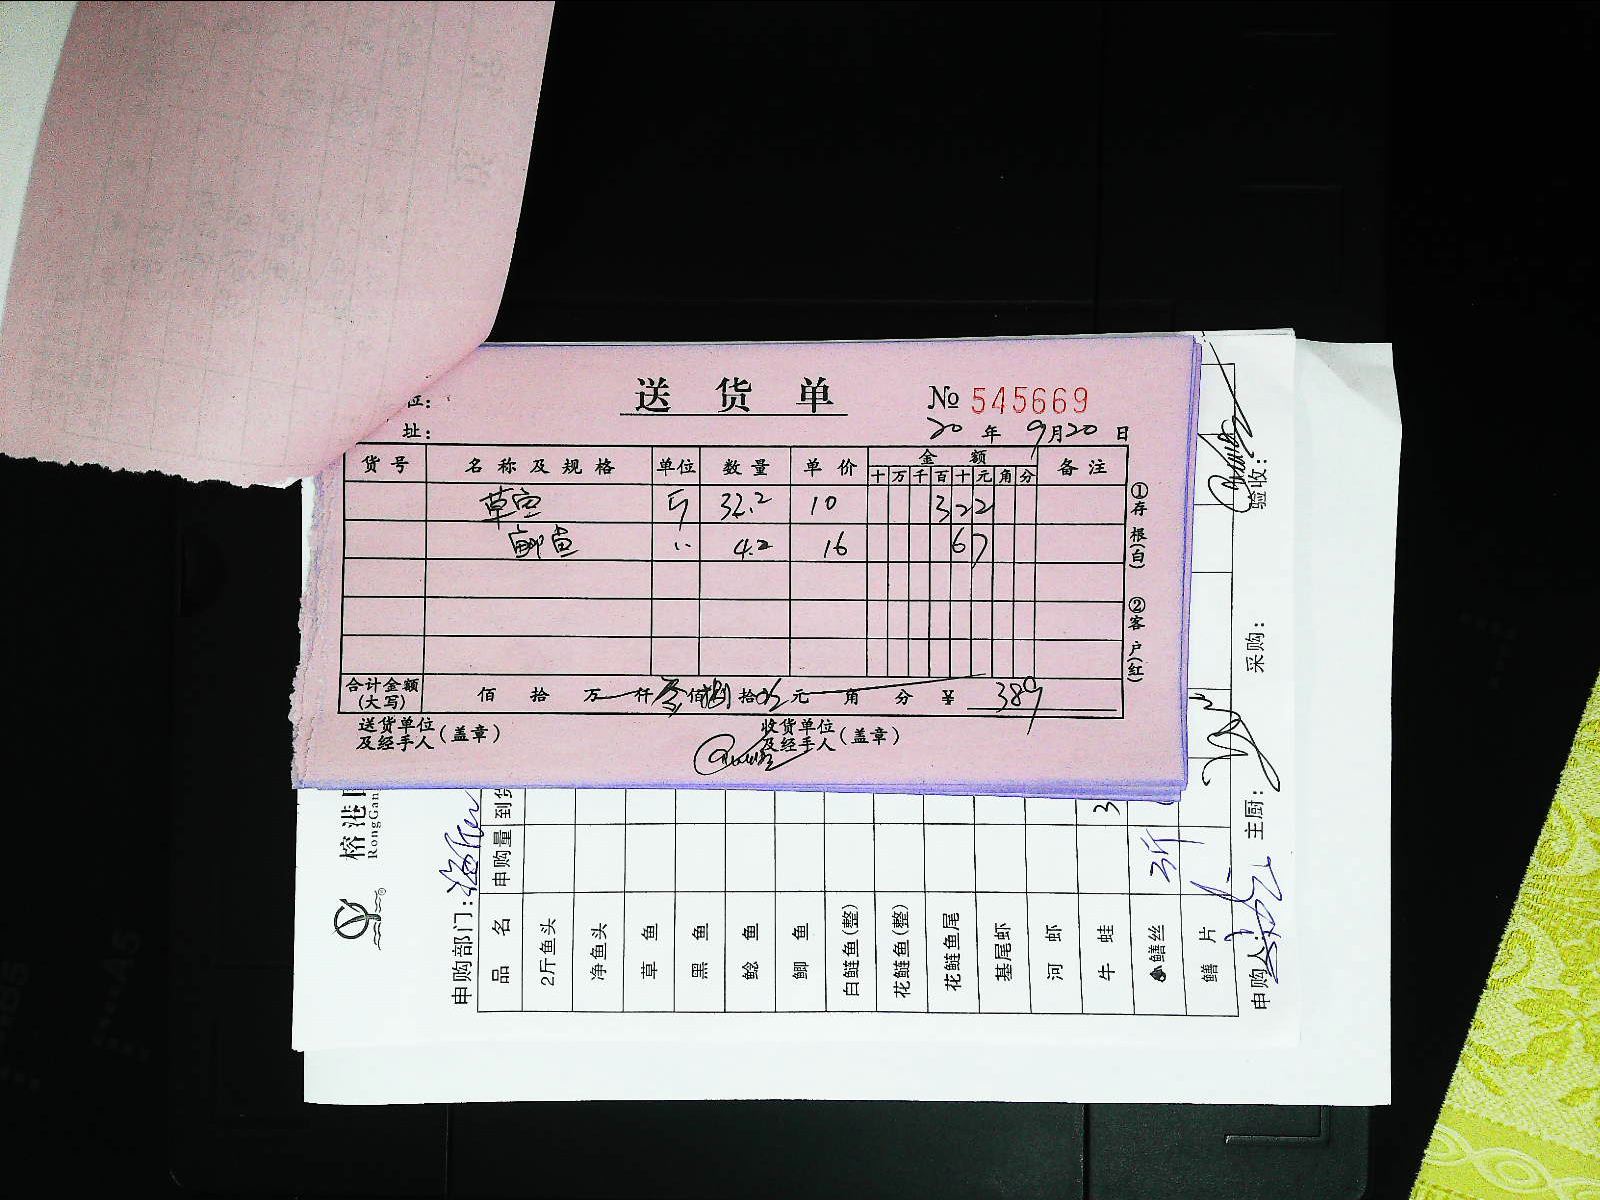 送 货 单
№ 545669
位：
址：
20 年 9月20 日
货 号 名 称 及 规 格 单位 数 量 单 价 金 额 备 注
十 万 千 百 十 元 角 分
草鱼 斤 32.2 10 322
鲫鱼 〃 4.2 16 67
合计金额(大写) 佰 拾 万 仟 叁 佰 捌 拾 玖 元 角 分 ¥ 389
送货单位及经手人(盖章) 收货单位及经手人(盖章)
①存根(白) ②客户(红)
榕港
RongGan
申购部门：海鲜
品 名 申购量 到货
2斤鱼头
净鱼头
草 鱼
黑 鱼
鲶 鱼
鲫 鱼
白鲢鱼(整)
花鲢鱼(整)
花鲢鱼尾
基尾虾
河 虾
牛 蛙 3
鳝丝 3斤
鳝 片
申购人： 主厨： 采购： 验收：